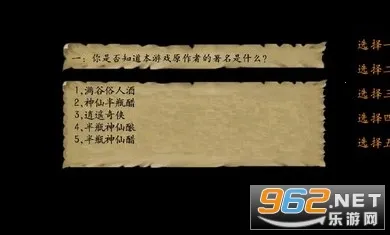 一:你是否知道本游戏原作者的署名是什么?
1,满谷俗人酒
2,神仙半瓶醋
3,逍遥奇侠
4,半瓶神仙酿
5,半瓶神仙醋
选择一
选择二
选择三
选择四
选择五
962.NET
乐游网